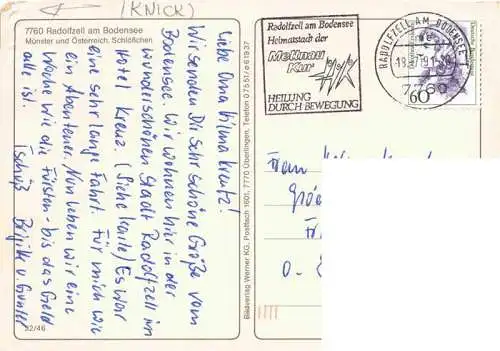 (KNICK)
7760 Radolfzell am Bodensee
Münster und Österreich. Schlößchen
Liebe Oma
Wir senden Dir sehr schöne Grüße vom
Bodensee. Wir wohnen hier in der
wunderschönen Stadt Radolfzell im
Hotel Kreuz. (Siehe Karte) Es war
eine sehr lange Fahrt. Für mich wie
ein Abenteuer. Nun leben wir eine
Woche wie die Fürsten - bis das Geld
alle ist.
Tschüß Brigitte u. Günter
32/46
Bildverlag Werner KG, Postfach 1601, 7770 Überlingen, Telefon 07551/
Radolfzell am Bodensee
Heimatstadt der
Mettnau
Kur
HEILUNG
DURCH BEWEGUNG
RADOLFZELL AM BODENSEE
7760
60
Frau
0-